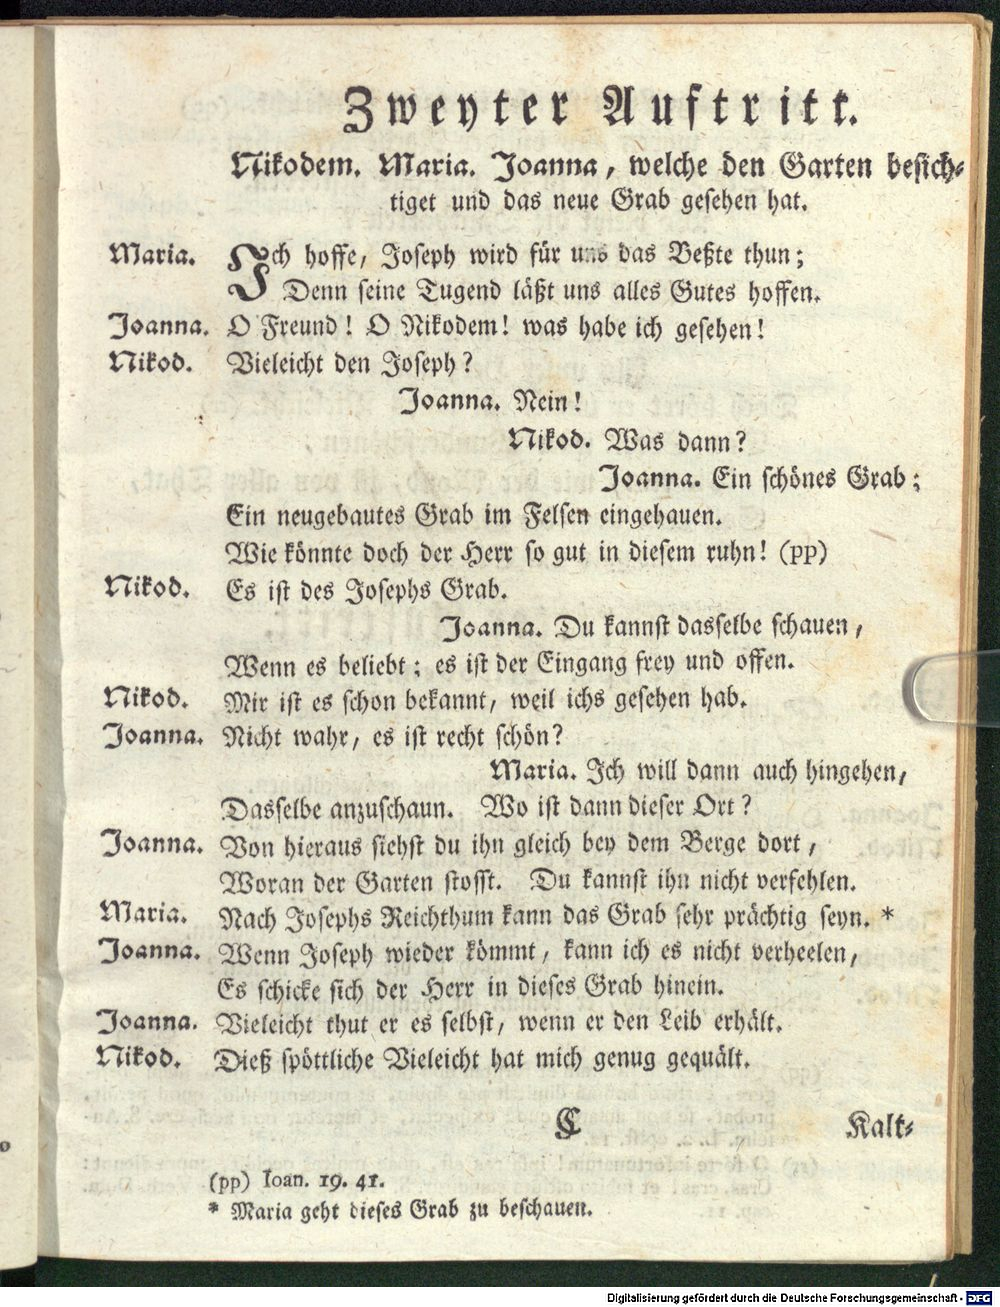 Zweyter Auftritt.
Nikodem. Maria. Joanna, welche den Garten besich-
tiget und das neue Grab gesehen hat.
Maria. Ich hoffe, Joseph wird für uns das Beßte thun;
Denn seine Tugend läßt uns alles Gutes hoffen.
Joanna. O Freund! O Nikodem! was habe ich gesehen!
Nikod. Vieleicht den Joseph?
Joanna. Nein!
Nikod. Was dann?
Joanna. Ein schönes Grab;
Ein neugebautes Grab im Felsen eingehauen.
Wie könnte doch der Herr so gut in diesem ruhn! (pp)
Nikod. Es ist des Josephs Grab.
Joanna. Du kannst dasselbe schauen,
Wenn es beliebt; es ist der Eingang frey und offen.
Nikod. Mir ist es schon bekannt, weil ichs gesehen hab.
Joanna. Nicht wahr, es ist recht schön?
Maria. Ich will dann auch hingehen,
Dasselbe anzuschaun. Wo ist dann dieser Ort?
Joanna. Von hieraus siehst du ihn gleich bey dem Berge dort,
Woran der Garten stosst. Du kannst ihn nicht verfehlen.
Maria. Nach Josephs Reichthum kann das Grab sehr prächtig seyn. *
Joanna. Wenn Joseph wieder kömmt, kann ich es nicht verheelen,
Es schicke sich der Herr in dieses Grab hinein.
Joanna. Vieleicht thut er es selbst, wenn er den Leib erhält.
Nikod. Dieß spöttliche Vieleicht hat mich genug gequält.
C Kalt-
(pp) Ioan. 19. 41.
* Maria geht dieses Grab zu beschauen.
Digitalisierung gefördert durch die Deutsche Forschungsgemeinschaft - DFG